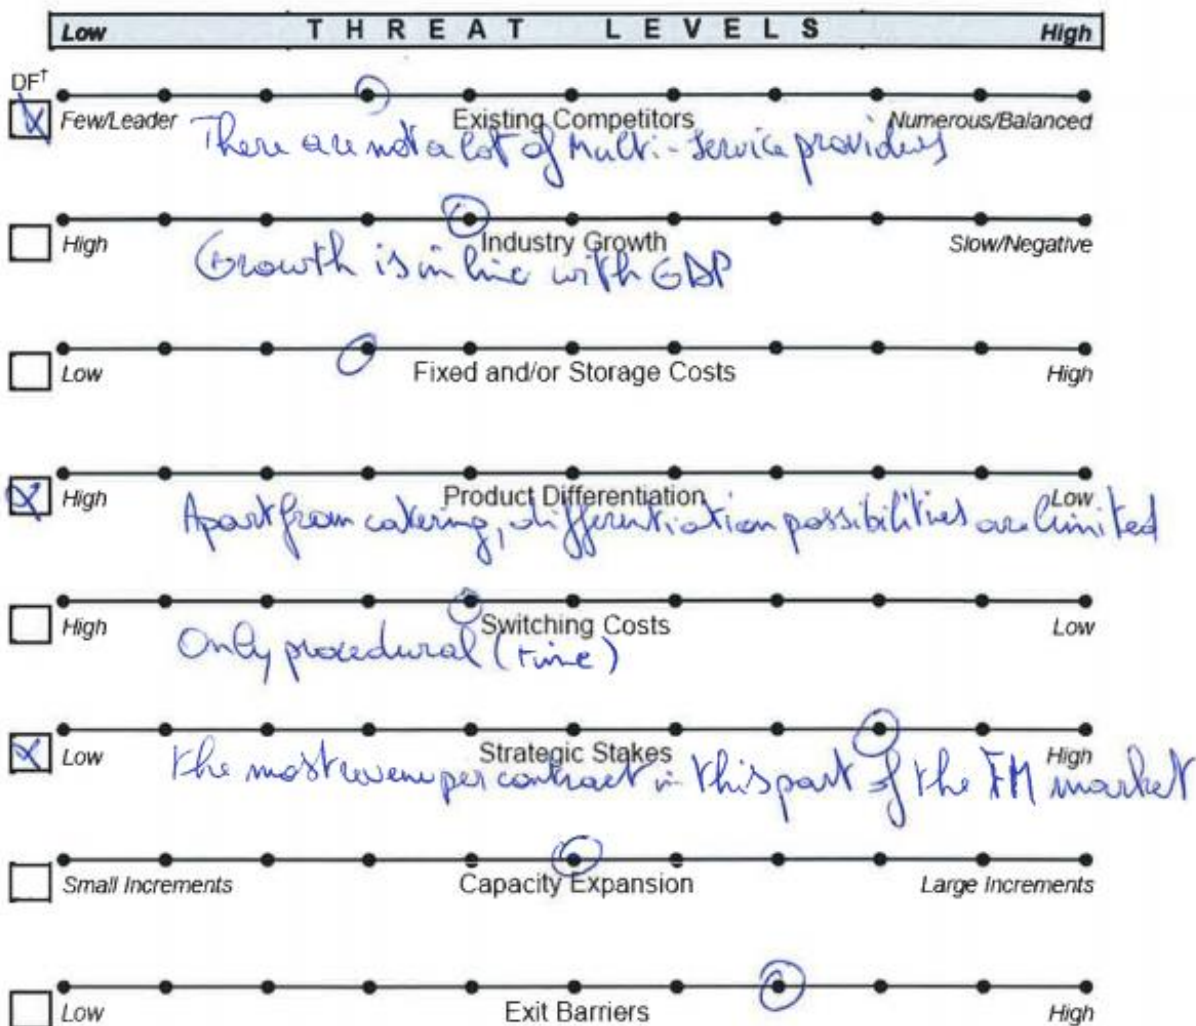 Low THREAT LEVELS High
DF†
Few/Leader Existing Competitors Numerous/Balanced
There are not a lot of Multi-service providers
High Industry Growth Slow/Negative
Growth is in line with GDP
Low Fixed and/or Storage Costs High
High Product Differentiation Low
Apart from catering, differentiation possibilities are limited
High Switching Costs Low
Only procedural (time)
Low Strategic Stakes High
the most revenu per contract in this part of the FM market
Small Increments Capacity Expansion Large Increments
Low Exit Barriers High